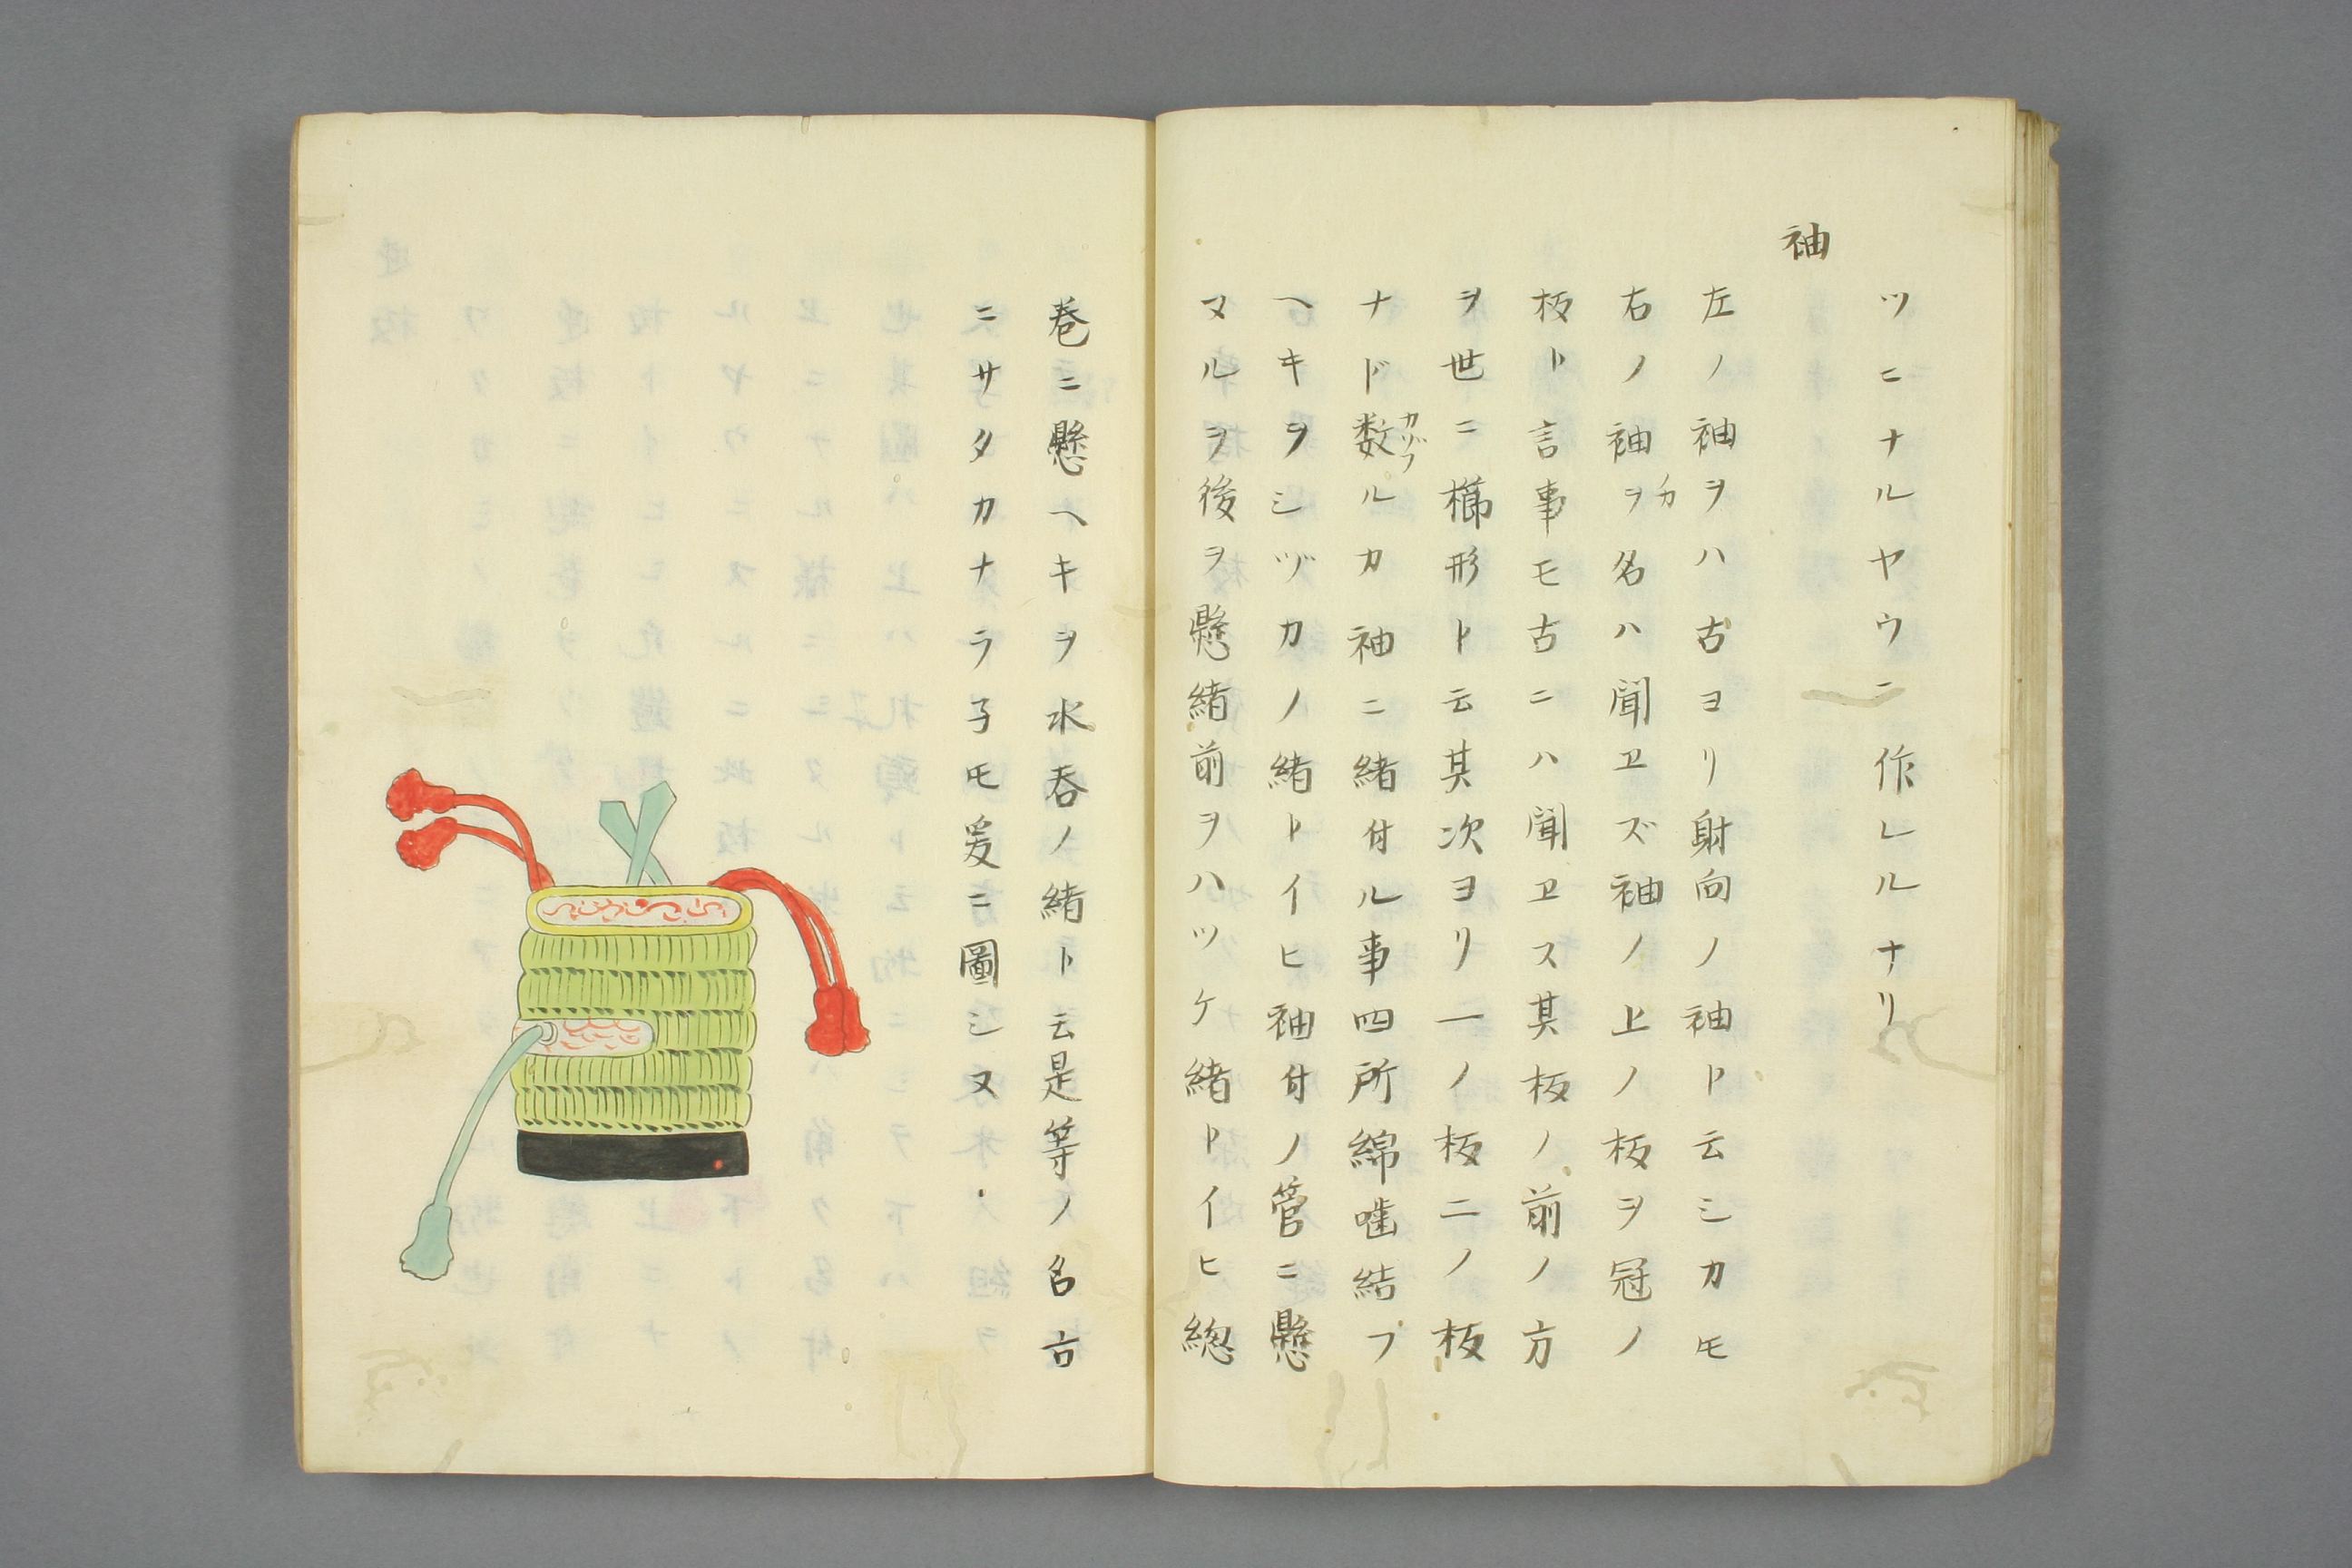 ツニナルヤウニ作レルナリ
袖
左ノ袖ヲハ古ヨリ射向ノ袖ト云シカモ
右ノ袖ヲカ名ハ聞ヱズ袖ノ上ノ板ヲ冠ノ
板ト言事モ古ニハ聞ヱス其板ノ前ノ方
ヲ世ニ櫛形ト云其次ヨリ一ノ板二ノ板
ナド数カゾフルカ袖ニ緒付ル事四所綿噛結フ
ヘキヲシヅカノ緒トイヒ袖付ノ管ニ懸
マルヲ後ヲ懸緒前ヲハツケ緒トイヒ總
巻ニ懸ヘキヲ水呑ノ緒ト云是等ノ名古
ニサタカナラ子モ爰ニ圖シヌ